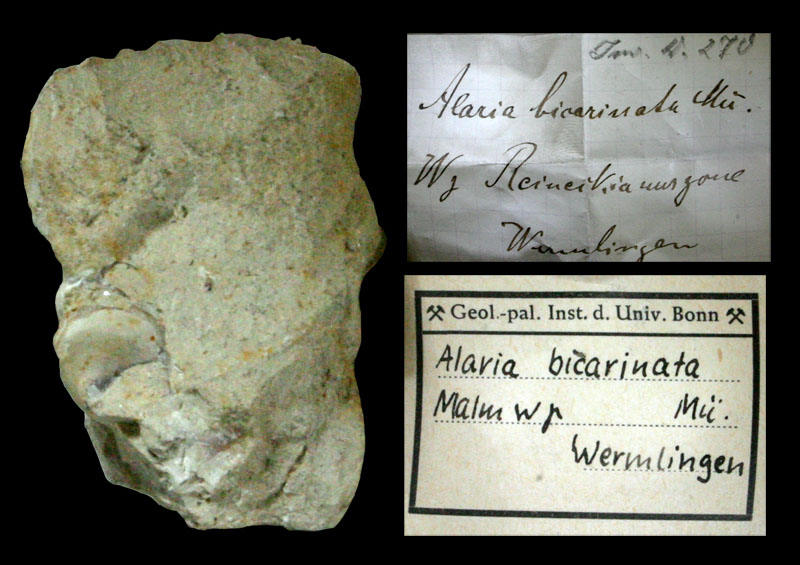 Inv. N. 270
Alaria bicarinata Mü.
Wγ Reineckianuszone
Wermlingen
⚒ Geol.-pal. Inst. d. Univ. Bonn ⚒
Alaria bicarinata
Malm wγ Mü.
Wermlingen